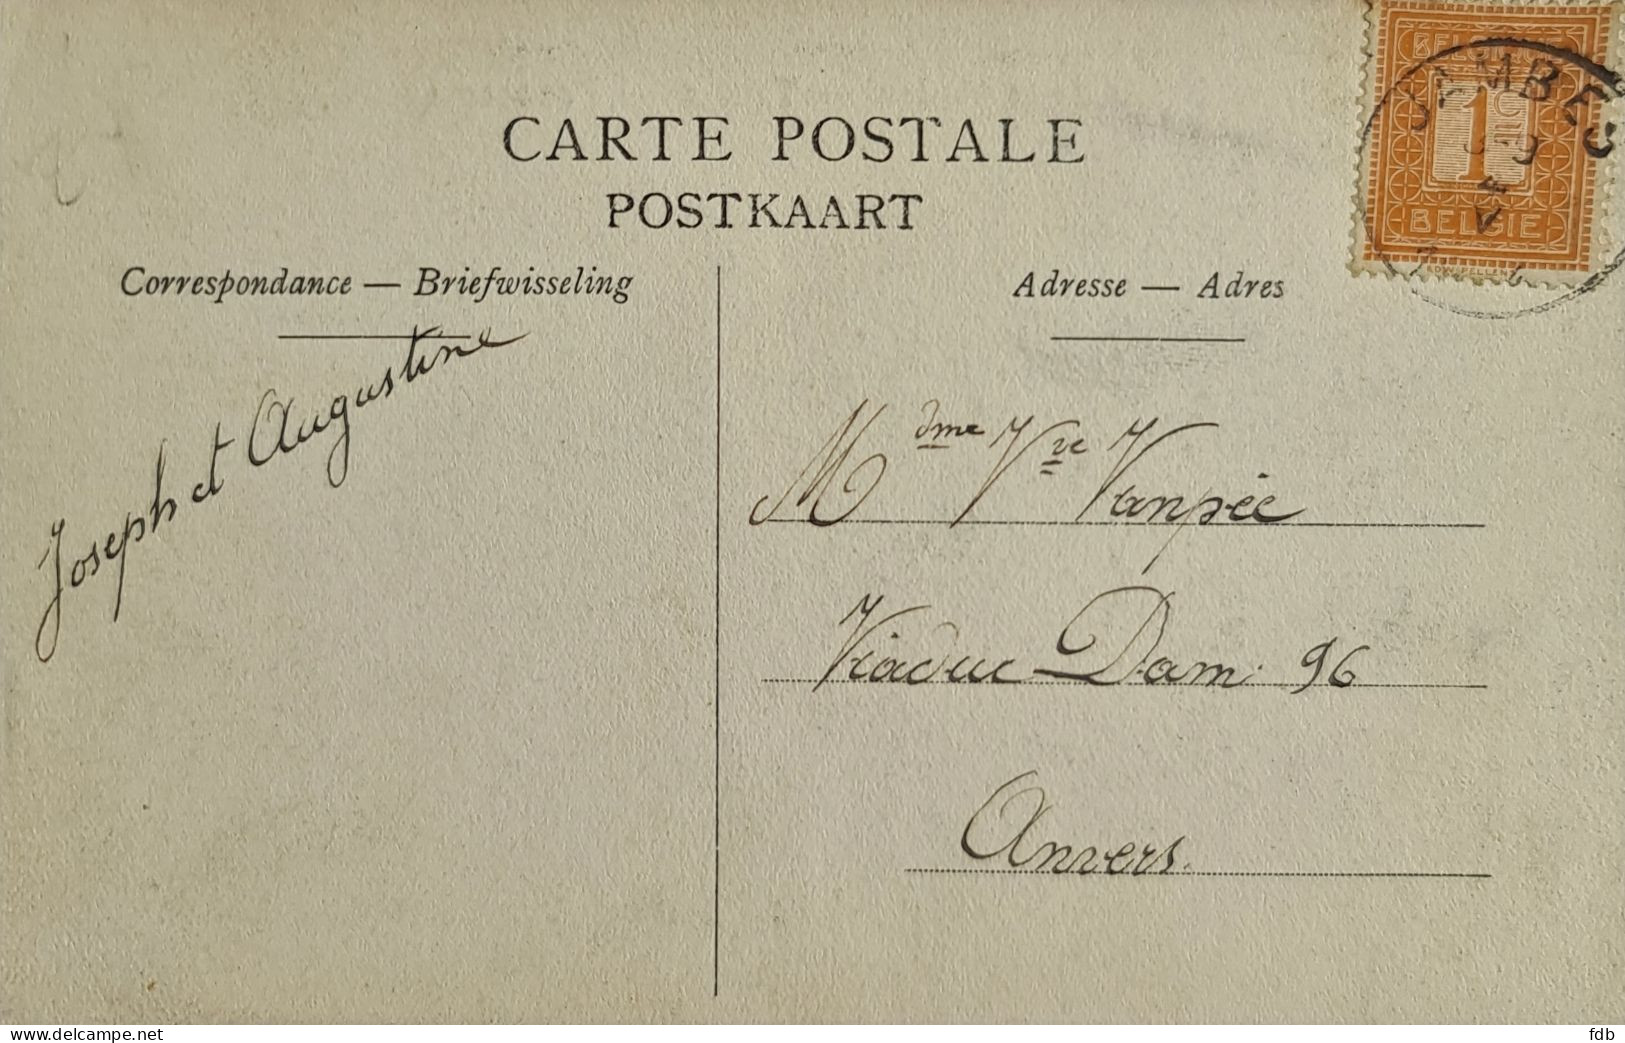 CARTE POSTALE
POSTKAART
Correspondance — Briefwisseling
Adresse — Adres
BELGIQUE
1
BELGIE
JAMBES
Joseph et Augustine
Mdme Vve Vanpée
Viaduc - Dam. 96
Anvers.
www.delcampe.net
fdb